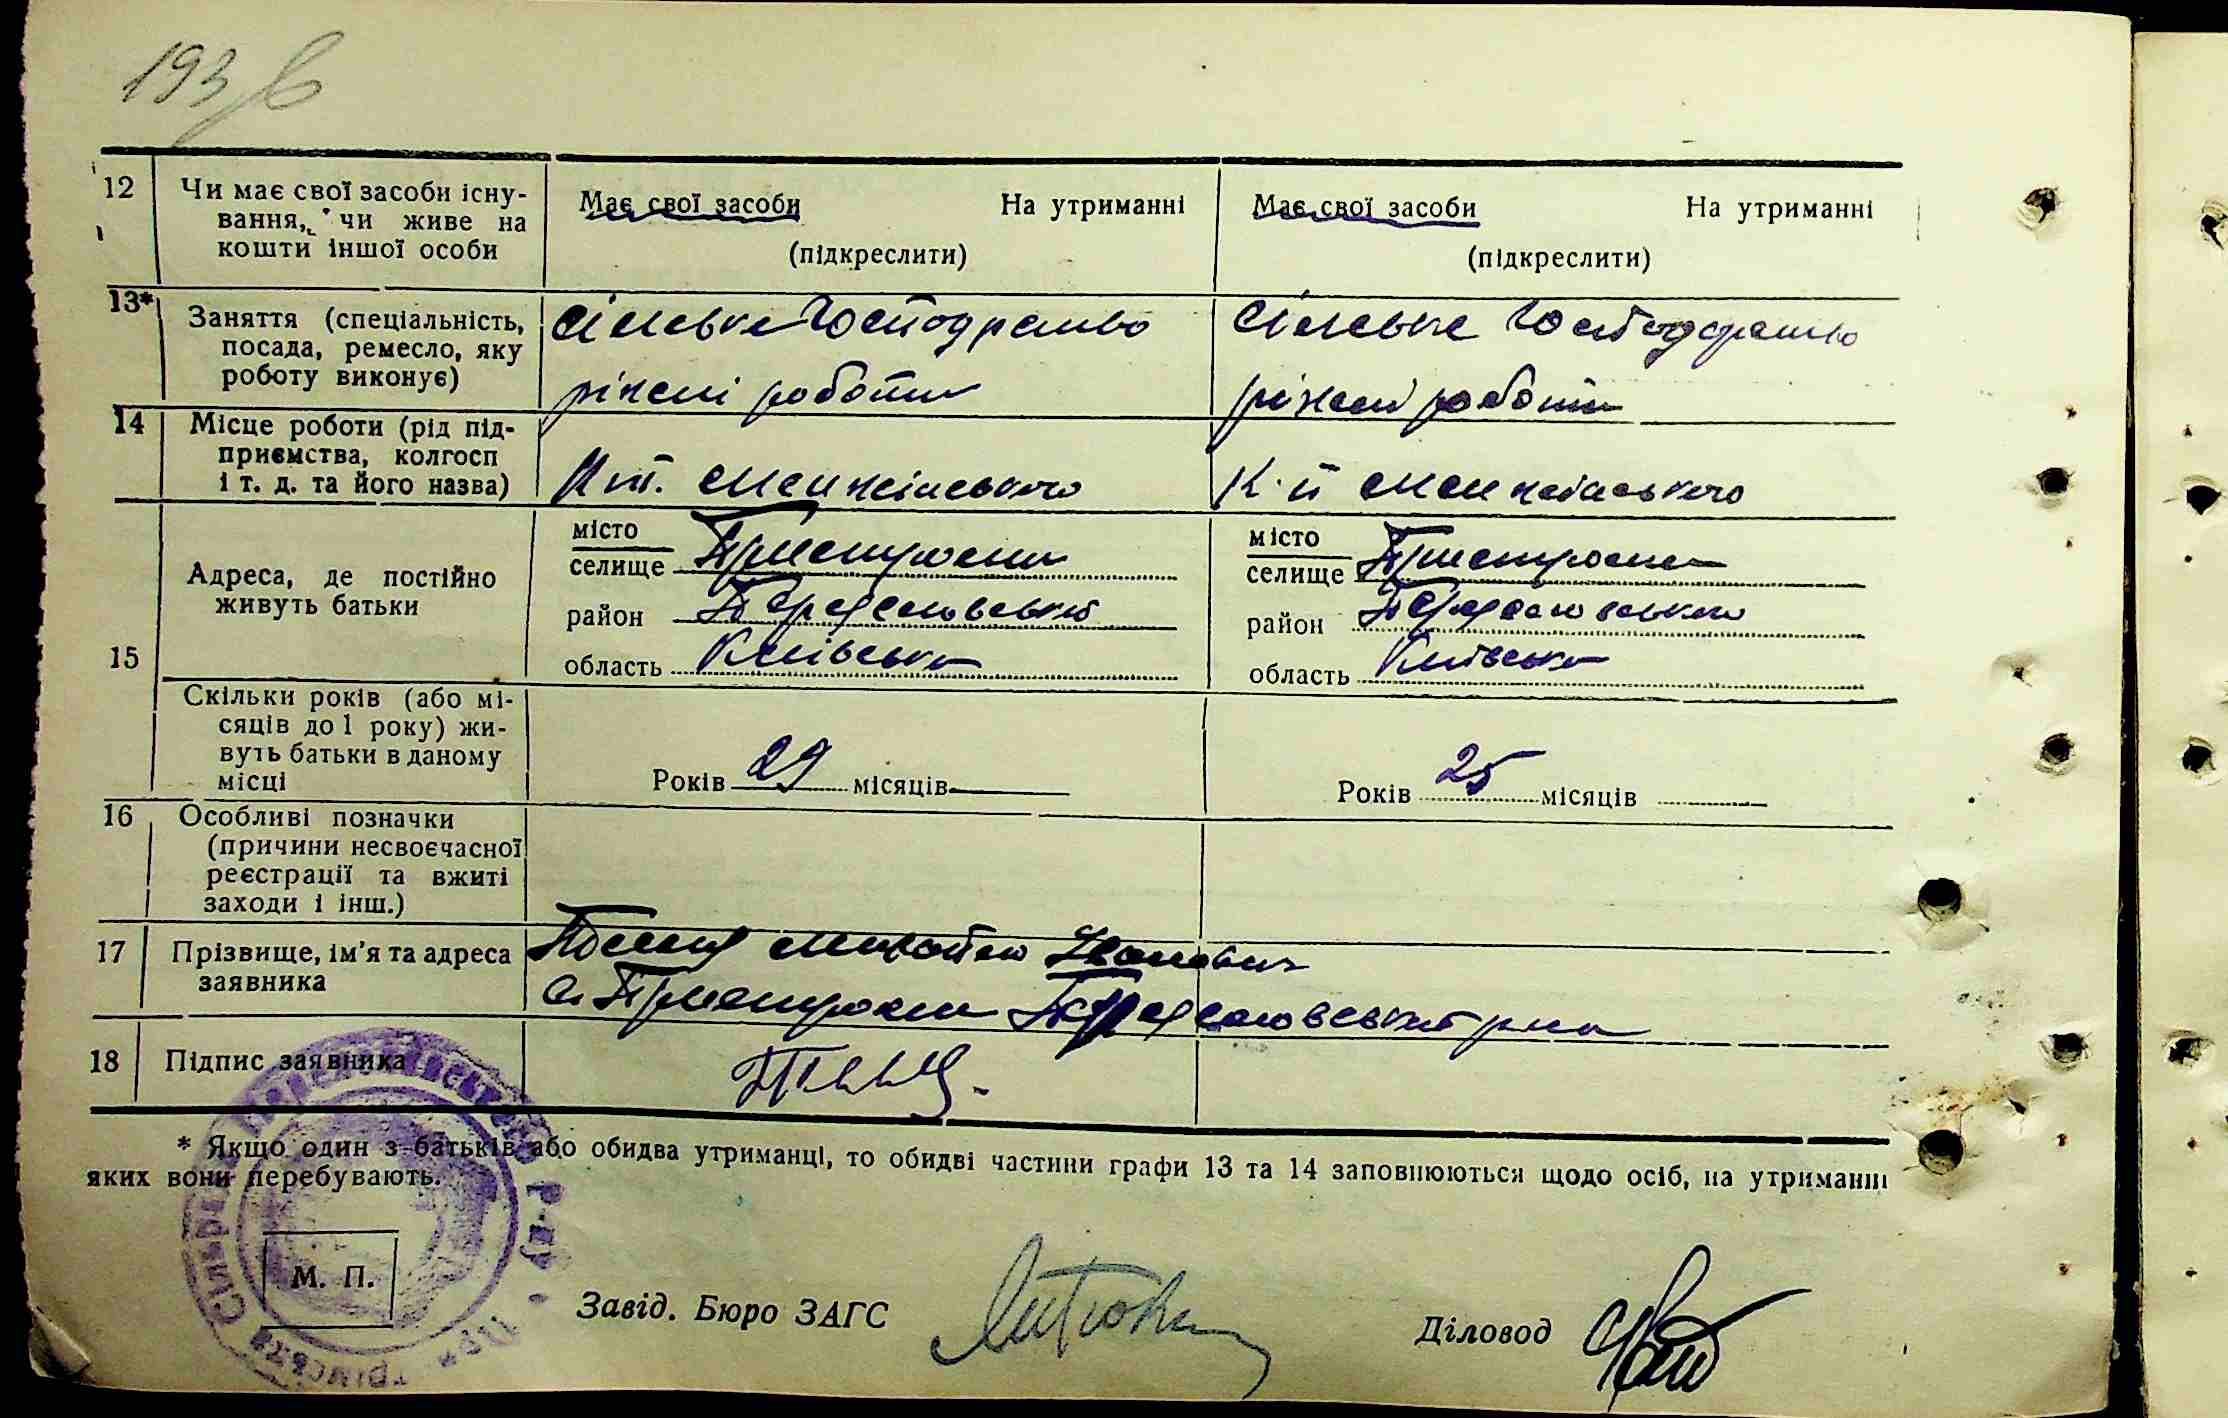 193 в
12 Чи має свої засоби існу-
вання, чи живе на
кошти іншої особи
Має свої засоби На утриманні
(підкреслити)
Має свої засоби На утриманні
(підкреслити)
13* Заняття (спеціальність,
посада, ремесло, яку
роботу виконує)
сільське господратво
ріжні роботи
сільське господратво
ріжні роботи
14 Місце роботи (рід під-
приємства, колгосп
і т. д. та його назва)
15 Адреса, де постійно
живуть батьки
місто
селище Пристроми
район Переяславський
область Київська
місто
селище Пристроми
район Переяславського
область Київська
Скільки років (або мі-
сяців до 1 року) жи-
вуть батьки в даному
місці
Років 29 місяців
Років 25 місяців
16 Особливі позначки
(причини несвоєчасної
реєстрації та вжиті
заходи і інш.)
17 Прізвище, ім'я та адреса
заявника
Іванович
с. Пристроми Переяславський рна
18 Підпис заявника
* Якщо один з батьків або обидва утриманці, то обидві частини графи 13 та 14 заповнюються щодо осіб, на утриманні
яких вони перебувають.
М. П.
Завід. Бюро ЗАГС
Діловод